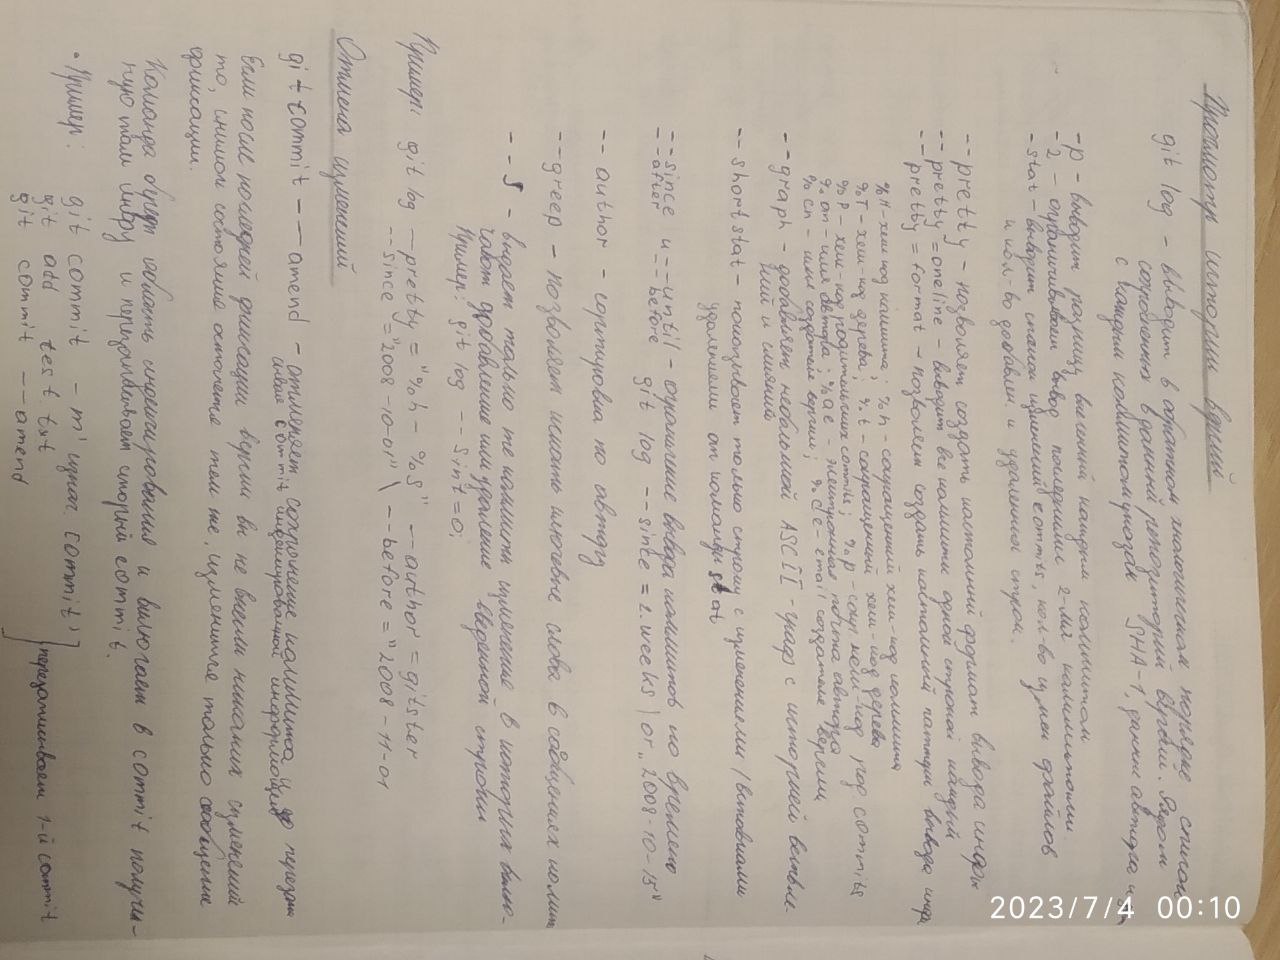 Просмотр истории версий
git log - выводит в обратном хналогическом порядке список
сохраненных в данный репозиторий версий. Рядом
с каждым коммитом указан SHA-1, данные автора и
-p - выводит разницу внесенную каждым коммитом
-2 - ограничивает вывод последними 2-мя коммитами
-stat - выводит список изменений commits, кол-во измен файлов
и кол-во добавлен. и удаленных строк.
-- pretty - позволяет создать настолный формат вывода инфы
-- pretty = oneline - выводит все коммиты одной строкой каждый
-- pretty = format - позволяет создать настольный паттерн вывода инфы
%H - хеш код коммита; %h - сокращенный хеш-код коммита
%T - хеш-код дерева; %t - сокращенный хеш-код дерева
%P - хеш-код родительских commits; %p - сокр хеш-код род commits
%an - имя автора; %ae - электронная почта автора
%cn - имя создателя версии; %ce - email создателя версии
-- graph - добавляет небольшой ASCII - граф с историей ветвле-
ний и слияний
-- shortstat - показывает только строку с изменениями / вставками
удалениями от команды stat
-- since и -- until - ограничение вывода коммитов по времени
-- after -- before git log --since = 2.weeks | or „2008-10-15"
-- author - сортировка по автору
-- greep - позволяет искать ключевые слова в сообщениях коммит
-- S - выдает только те коммиты изменение в которых вклю-
чают добавление или удаление введенной строки
Пример: git log --Sint=0;
Пример: git log -- pretty = "%h - %s" -- author = gitster
--since = "2008-10-01" \ --before = "2008-11-01
Отмена изменений
git commit -- amend - отменяет сохранение коммита до
новые commit информацией
Если после последней фиксации версии вы не внесли никаких изменений
то, снимок состояние останется тем же, изменится только сообщение
фиксации.
Команда берет область индексирования и включает в commit получен-
ную там инфу и перезаписывает старый commit.
• Пример: git commit -m' initial commit'
git add test.txt
git commit --amend
перезаписывает 1-й commit
2023/7/4 00:10